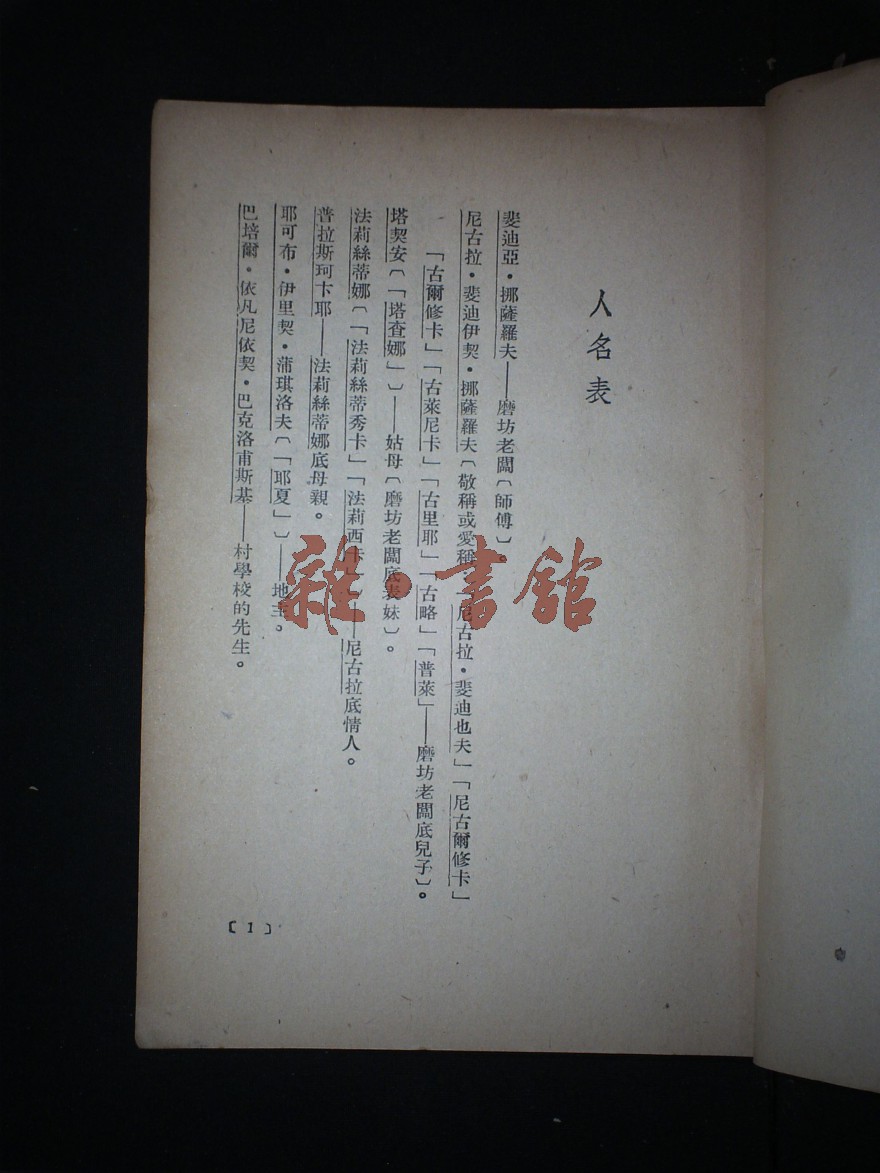 人名表
斐迪亞·挪薩羅夫——磨坊老闆〔師傅〕
尼古拉·斐迪伊契·挪薩羅夫〔敬稱或愛稱：「尼古拉·斐迪也夫」「尼古爾修卡」
「古爾修卡」「古萊尼卡」「古里耶」「古略」「普萊」——磨坊老闆底兒子〕。
塔契安〔「塔查娜」〕——姑母〔磨坊老闆底表妹〕。
法莉絲蒂娜〔「法莉絲蒂秀卡」「法莉西卡」〕——尼古拉底情人。
普拉斯珂卞耶——法莉絲蒂娜底母親。
耶可布·伊里契·蒲琪洛夫〔「耶夏」〕——地主。
巴培爾·依凡尼依契·巴克洛甫斯基——村學校的先生。
〔1〕
雜·書館